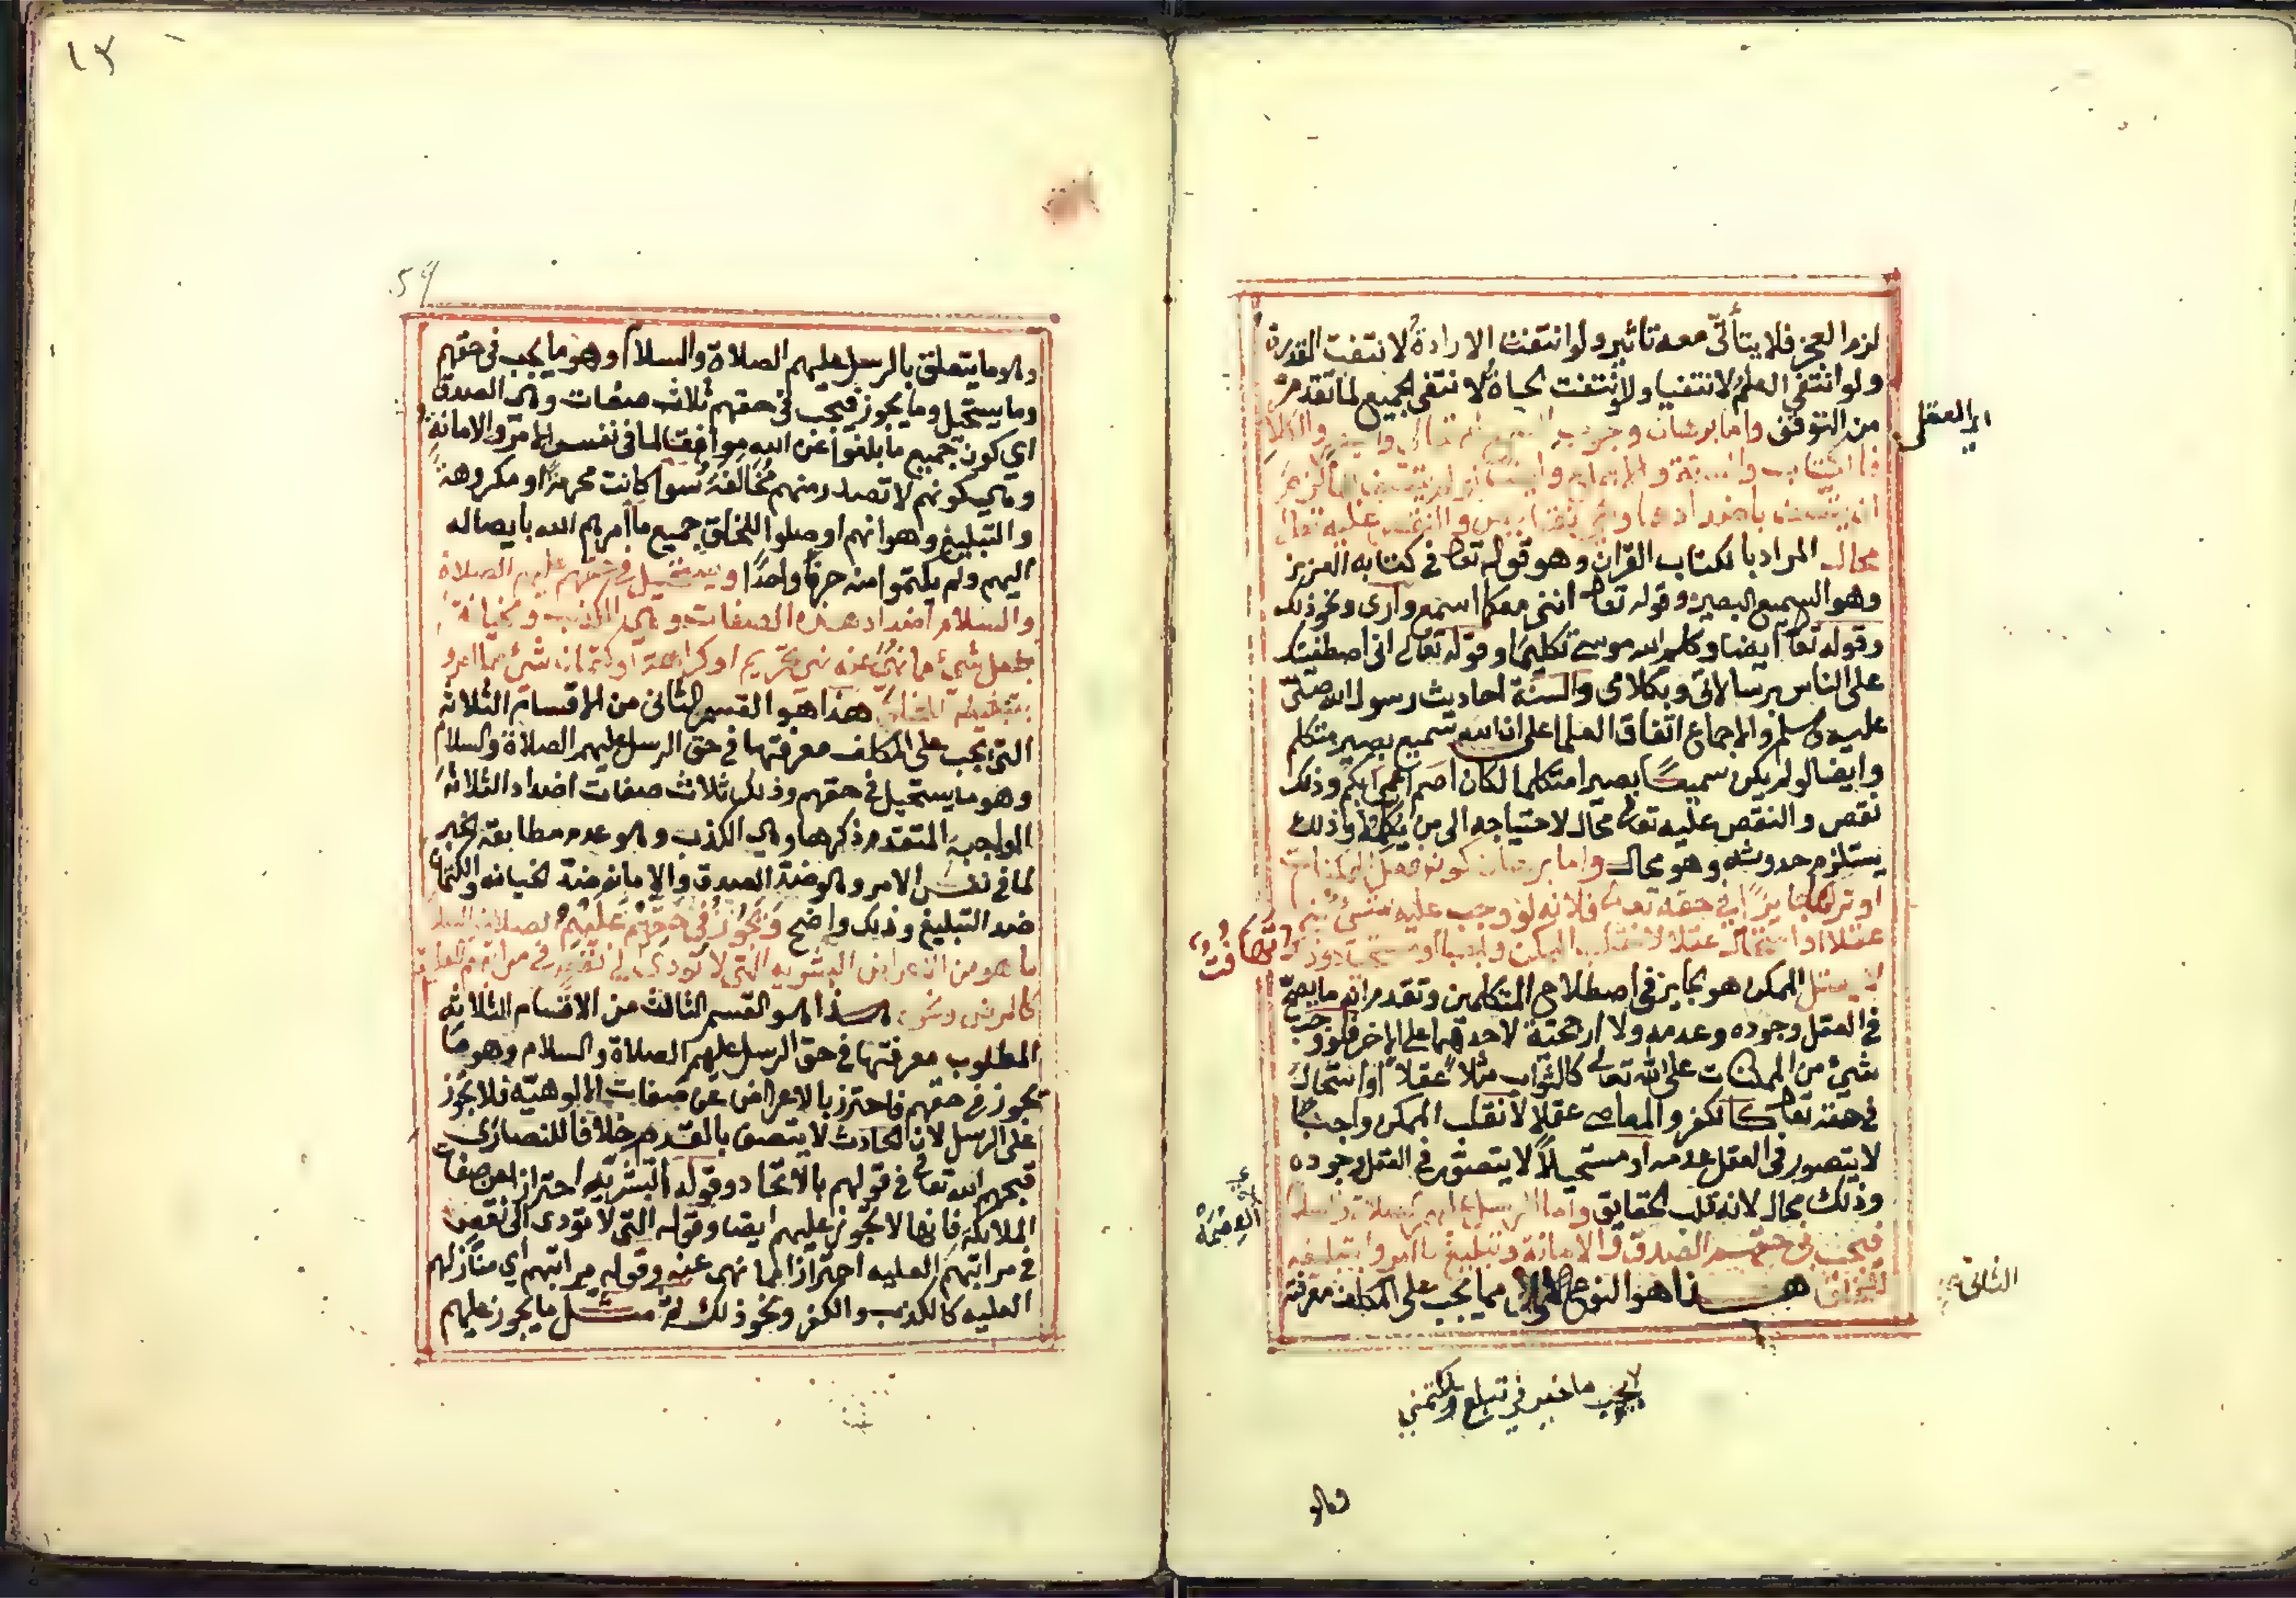 لزم العجز فلا يتأتى معه تاثير ولو انتفت الارادة لانتفت القدرة
ولو انتفى العلم لانتفيا ولو انتفت الحياة لانتفى الجميع لما تقدم
من التوقف واما برهان وجوب السمع له تعالى والبصر والكلام
فالكتاب والسنة والاجماع وايضا لو لم يتصف بها لزم
ان يتصف باضدادها وهي نقايص والنقص عليه تعالى
محال المراد بالكتاب القرآن وهو قوله تعا في كتابه العزيز
وهو السميع البصير وقوله تعا انني معكما اسمع وارى ونحو ذلك
وقوله تعا ايضا وكلم الله موسى تكليما وقوله تعالى اني اصطفيتك
على الناس برسالاتي وبكلامي والسنة احاديث رسول الله صلى
عليه وسلم والاجماع اتفاق العلما على ان الله سميع بصير متكلم
وايضا لو لم يكن سميعًا بصيرا متكلما لكان اصم اعمى ابكم وذلك
نقص والنقص عليه تعا محال لاحتياجه الى من يكمله وذلك
يستلزم حدوثه وهو محال واما برهان كون فعل الممكنات
او تركها جايزًا في حقه تعا فلانه لو وجب عليه شئ منها
عقلا او استحال عقلا لانقلب الممكن واجبا او مستحيلا وذلك
لا يعقل الممكن هو الجايز في اصطلاح المتكلمين وتقدم انه ما يصح
في العقل وجوده وعدمه ولا ارجحية لاحدهما على الاخر فلو وجب
شيئ من الممكنات على الله تعالى كالثواب مثلا عقلا او استحال
في حقه تعا كالكفر والمعاصي عقلا لانقلب الممكن واجبا
لا يتصور في العقل عدمه او مستحيلاً لا يتصور في العقل وجوده
وذلك محال لانه قلب الحقايق واما الرسل عليهم الصلاة والسلام
فيجب في حقهم الصدق والامانة وتبليغ ما امروا بتبليغه
للخلق هذا هو النوع مما يجب على المكلف معرفته
العقلي
الثاني
العصمة
وهو
وهو ما يتعلق بالرسل عليهم الصلاة والسلام وهو ما يجب في حقهم
وما يستحيل وما يجوز فيجب في حقهم ثلاث صفات وهي الصدق
اي كون جميع ما بلغوا عن الله موافقا لما في نفس الامر والامانة
وهي كونهم لا تصدر منهم مخالفة سوا كانت محرمة او مكروهة
والتبليغ وهو انهم اوصلوا للخلق جميع ما امرهم الله بايصاله
اليهم ولم يكتموا منه حرفا واحدًا ويستحيل في حقهم عليهم الصلاة
والسلام اضداد هذه الصفات وهي الكذب والخيانة
بفعل شئ مما نهى عنه نهي تحريم او كراهة او كتمان شئ مما امروا
بتبليغه للخلق هذا هو القسم الثاني من الاقسام الثلاثة
التي يجب على المكلف معرفتها في حق الرسل عليهم الصلاة والسلام
وهو ما يستحيل في حقهم وذلك ثلاث صفات اضداد الثلاثة
الواجبة المتقدم ذكرها وهي الكذب وهو عدم مطابقة الخبر
لما في نفس الامر وهو ضد الصدق والامانة ضد الخيانه والكتمان
ضد التبليغ وذلك واضح ويجوز في حقهم عليهم الصلاة والسلام
ما هو من الاعراض البشريه التي لا تودي الى نقص في مراتبهم العلية
كالمرض ونحوه هذا هو القسم الثالث من الاقسام الثلاثه
المطلوب معرفتها في حق الرسل عليهم الصلاة والسلام وهو ما
يجوز في حقهم فاحترز بالاعراض عن صفات الالوهية فلا يجوز
على الرسل لان الحادث لا يتصف بالقديم خلافا للنصارى
قبحهم الله تعا في قولهم بالاتحاد وقوله البشرية احترازا عن صفات
الملائكة فانها لا تجوز عليهم ايضا وقوله التي لا تودي الى نقص
في مراتبهم العليه احترازا مما نهى عنه وقوله مراتبهم اي منازلهم
العليه كالكذب والكفر ونحو ذلك مثل ما يجوز عليهم